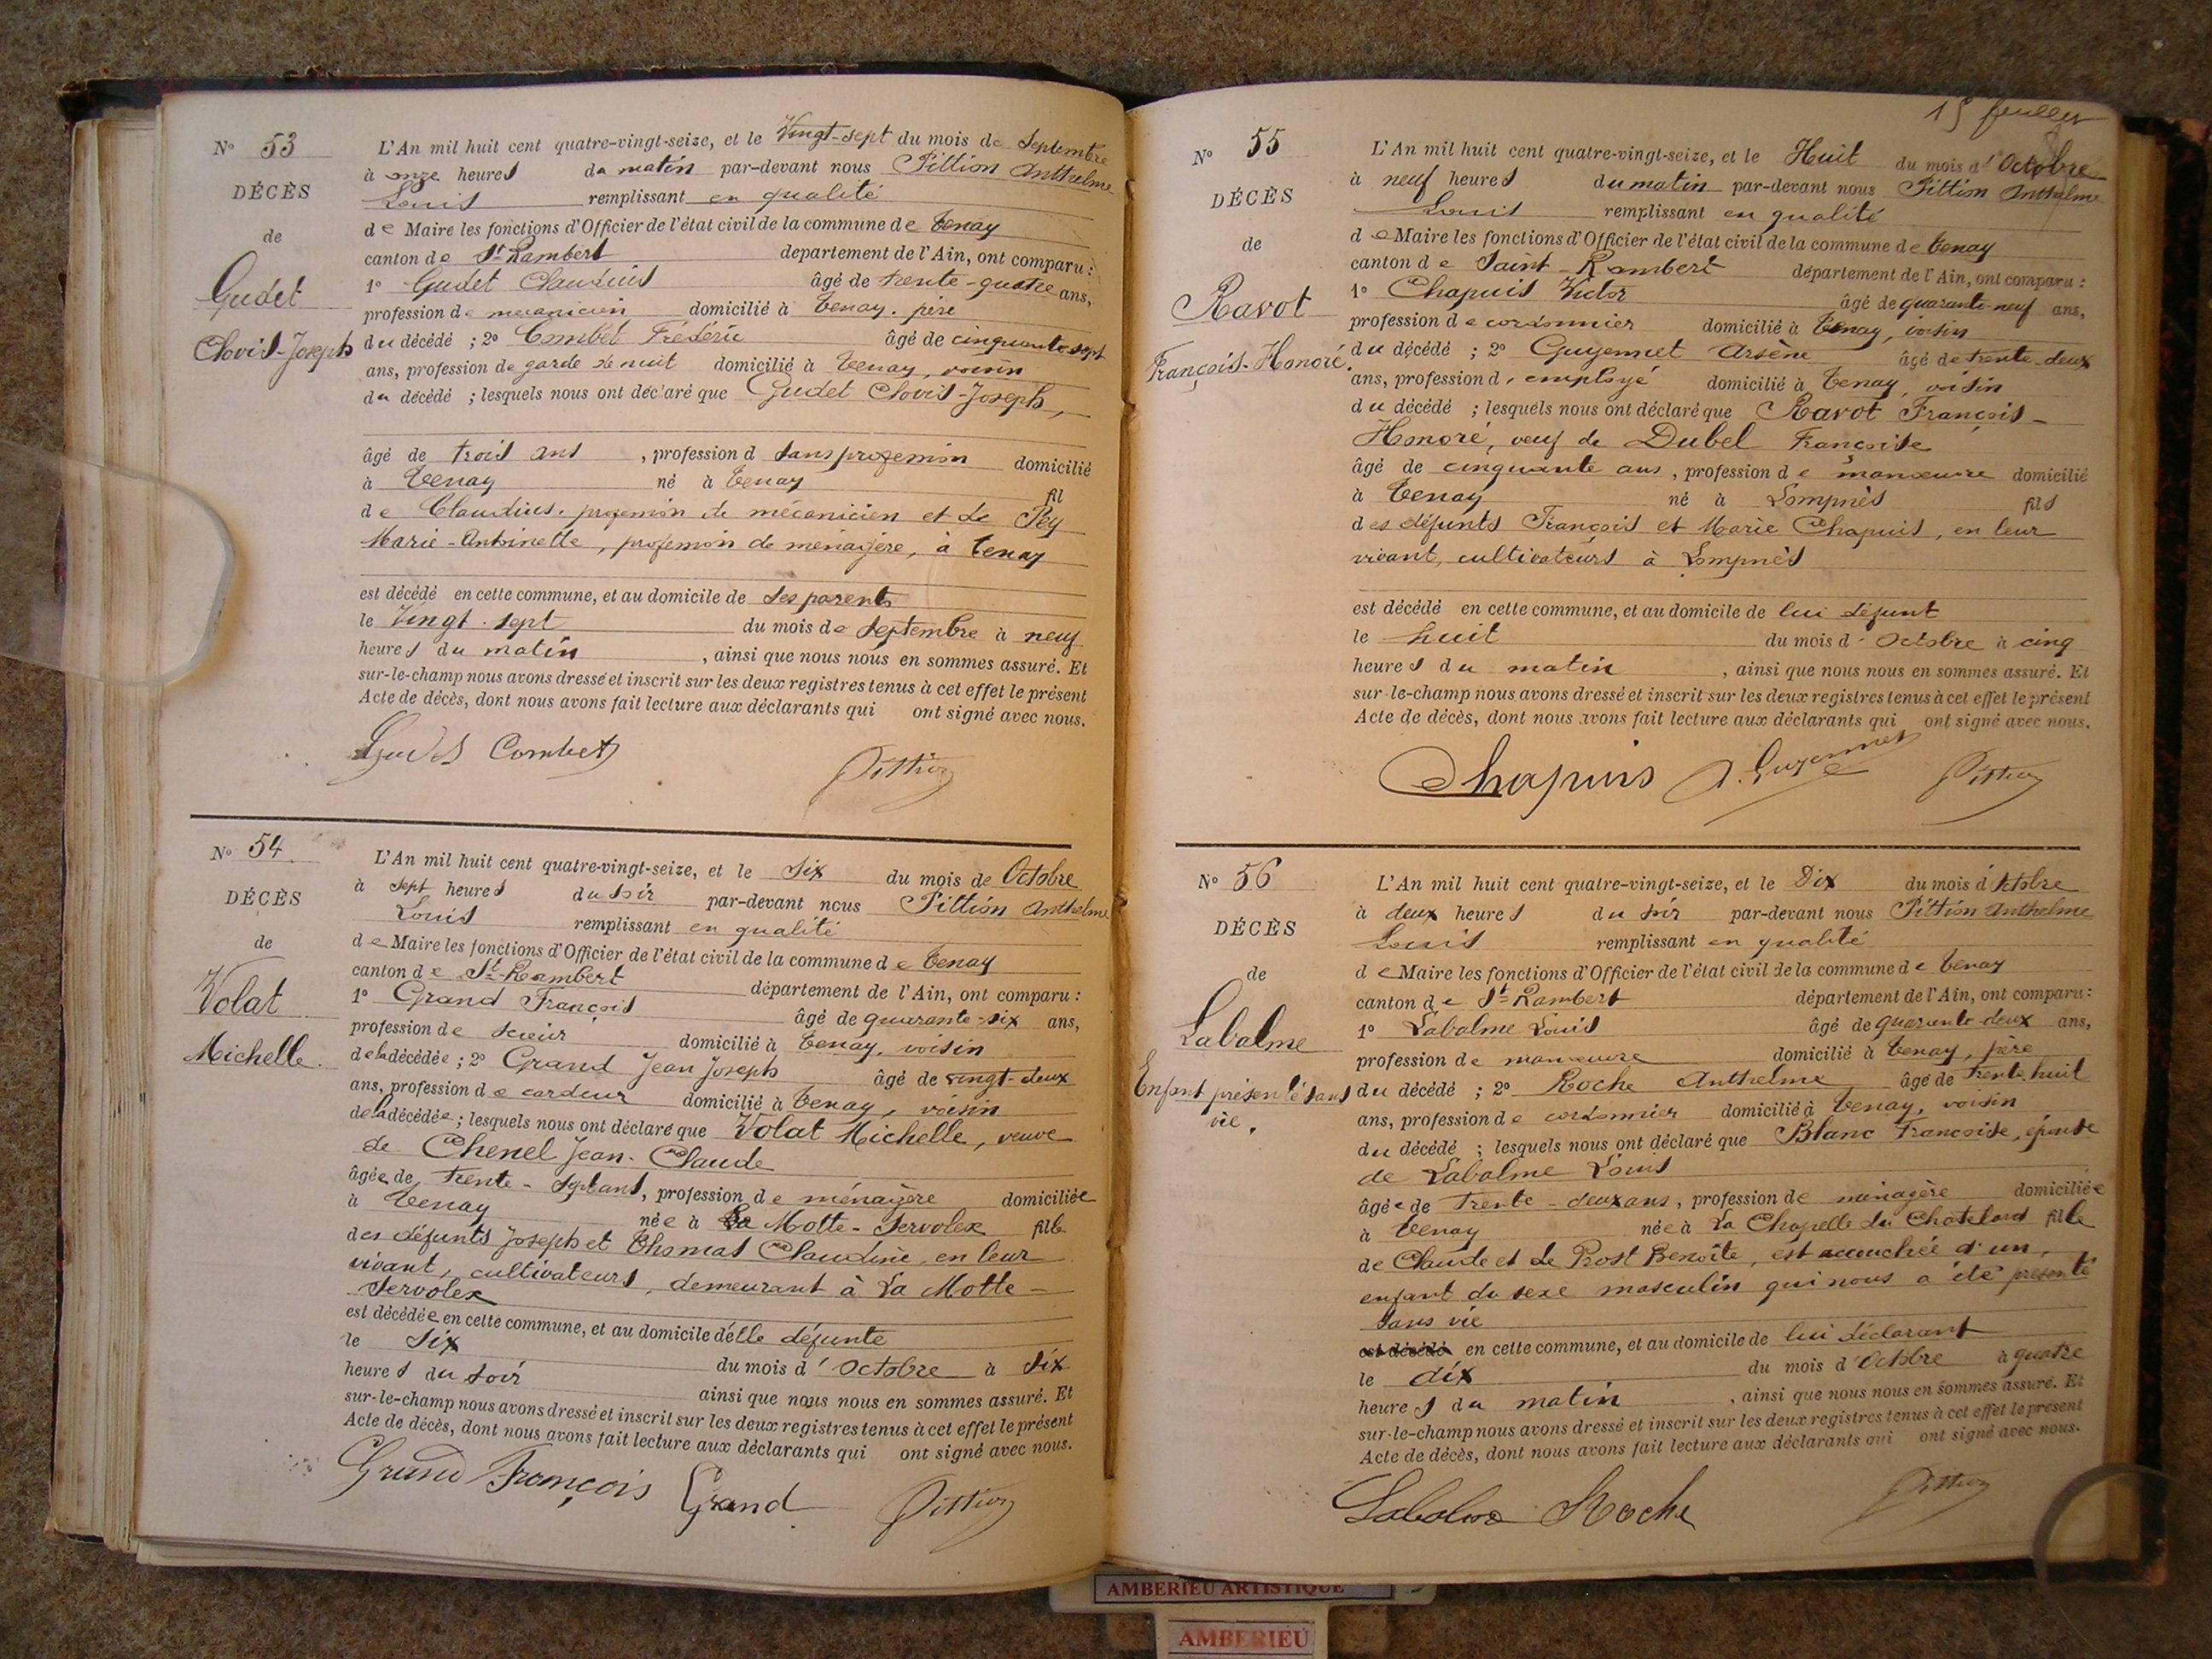 N° 53
DÉCÈS
de
Gudet
Clovis-Joseph
L'An mil huit cent quatre-vingt-seize, et le Vingt-sept du mois de Septembre
à onze heures du matin par-devant nous Pittion Anthelme
Louis remplissant en qualité
de Maire les fonctions d'Officier de l'état civil de la commune de Tenay
canton de St-Rambert département de l'Ain, ont comparu :
1° Gudet Claudius âgé de trente-quatre ans,
profession de mécanicien domicilié à Tenay, père
du décédé ; 2° Combet Frédéric âgé de cinquante sept
ans, profession de garde de nuit domicilié à Tenay, voisin
du décédé ; lesquels nous ont déclaré que Gudet Clovis-Joseph,
âgé de trois ans, profession d sans profession domicilié
à Tenay né à Tenay fil
de Claudius, profession de mécanicien et de Pey
Marie-Antoinette, profession de ménagère, à Tenay
est décédé en cette commune, et au domicile de ses parents
le Vingt-sept du mois de Septembre à neuf
heures du matin, ainsi que nous nous en sommes assuré. Et
sur-le-champ nous avons dressé et inscrit sur les deux registres tenus à cet effet le présent
Acte de décès, dont nous avons fait lecture aux déclarants qui ont signé avec nous.
Gudet Combet Pittion
N° 54
DÉCÈS
de
Volat
Michelle.
L'An mil huit cent quatre-vingt-seize, et le Six du mois de Octobre
à sept heures du soir par-devant nous Pittion Anthelme
Louis remplissant en qualité
de Maire les fonctions d'Officier de l'état civil de la commune de Tenay
canton de St-Rambert département de l'Ain, ont comparu :
1° Grand François âgé de quarante-six ans,
profession de scieur domicilié à Tenay, voisin
de la décédée ; 2° Grand Jean Joseph âgé de vingt-deux
ans, profession de cardeur domicilié à Tenay, voisin
de la décédée ; lesquels nous ont déclaré que Volat Michelle, veuve
de Chenel Jean-Claude
âgée de trente-sept ans, profession de ménagère domiciliée
à Tenay née à La Motte-Servolex fille
des défunts Joseph et Thomas Claudine, en leur
vivant, cultivateurs, demeurant à La Motte-
Servolex
est décédée en cette commune, et au domicile d'elle défunte
le Six du mois d'Octobre à six
heures du soir ainsi que nous nous en sommes assuré. Et
sur-le-champ nous avons dressé et inscrit sur les deux registres tenus à cet effet le présent
Acte de décès, dont nous avons fait lecture aux déclarants qui ont signé avec nous.
Grand François Grand Pittion
15
N° 55
DÉCÈS
de
Ravot
François-Honoré.
L'An mil huit cent quatre-vingt-seize, et le Huit du mois d'Octobre
à neuf heures du matin par-devant nous Pittion Anthelme
Louis remplissant en qualité
de Maire les fonctions d'Officier de l'état civil de la commune de Tenay
canton de Saint-Rambert département de l'Ain, ont comparu :
1° Chapuis Victor âgé de quarante-neuf ans,
profession de cordonnier domicilié à Tenay, voisin
du décédé ; 2° Guyennet Arsène âgé de trente-deux
ans, profession d'employé domicilié à Tenay, voisin
du décédé ; lesquels nous ont déclaré que Ravot François-
Honoré, veuf de Dubel Françoise
âgé de cinquante ans, profession de manœuvre domicilié
à Tenay né à Lompnès fils
des défunts François et Marie Chapuis, en leur
vivant, cultivateurs à Lompnès
est décédé en cette commune, et au domicile de lui défunt
le huit du mois d'Octobre à cinq
heures du matin, ainsi que nous nous en sommes assuré. Et
sur-le-champ nous avons dressé et inscrit sur les deux registres tenus à cet effet le présent
Acte de décès, dont nous avons fait lecture aux déclarants qui ont signé avec nous.
Chapuis A. Guyennet Pittion
N° 56
DÉCÈS
de
Labalme
Enfant présenté sans
vie.
L'An mil huit cent quatre-vingt-seize, et le Dix du mois d'Octobre
à deux heures du soir par-devant nous Pittion Anthelme
Louis remplissant en qualité
de Maire les fonctions d'Officier de l'état civil de la commune de Tenay
canton de St-Rambert département de l'Ain, ont comparu :
1° Labalme Louis âgé de quarante-deux ans,
profession de manœuvre domicilié à Tenay, père
du décédé ; 2° Roche Anthelme âgé de trente-huit
ans, profession de cordonnier domicilié à Tenay, voisin
du décédé ; lesquels nous ont déclaré que Blanc Françoise, épouse
de Labalme Louis
âgée de trente-deux ans, profession de ménagère domiciliée
à Tenay née à La Chapelle du Chatelard fille
de Claude et de Prost Benoîte, est accouchée d'un
enfant du sexe masculin qui nous a été présenté
sans vie
est décédé en cette commune, et au domicile de lui déclarant
le dix du mois d'Octobre à quatre
heures du matin, ainsi que nous nous en sommes assuré. Et
sur-le-champ nous avons dressé et inscrit sur les deux registres tenus à cet effet le présent
Acte de décès, dont nous avons fait lecture aux déclarants qui ont signé avec nous.
Labalme Roche Pittion
AMBERIEU ARTISTIQUE
AMBERIEU